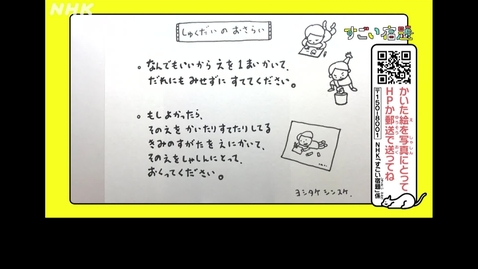 NHK
しゅくだい の おさらい
すごい宿題
。なんでもいいから えを 1まいかいて、
だれにも みせずに すててください。
。もし よかったら、
そのえを かいたり すてたり してる
きみのすがたを えにかいて、
そのえを しゃしんに とって、
おくってください。
ヨシタケ シンスケ.
かいた絵を写真にとって
HPか郵送で送ってね
〒150-8001 NHK「すごい宿題」係